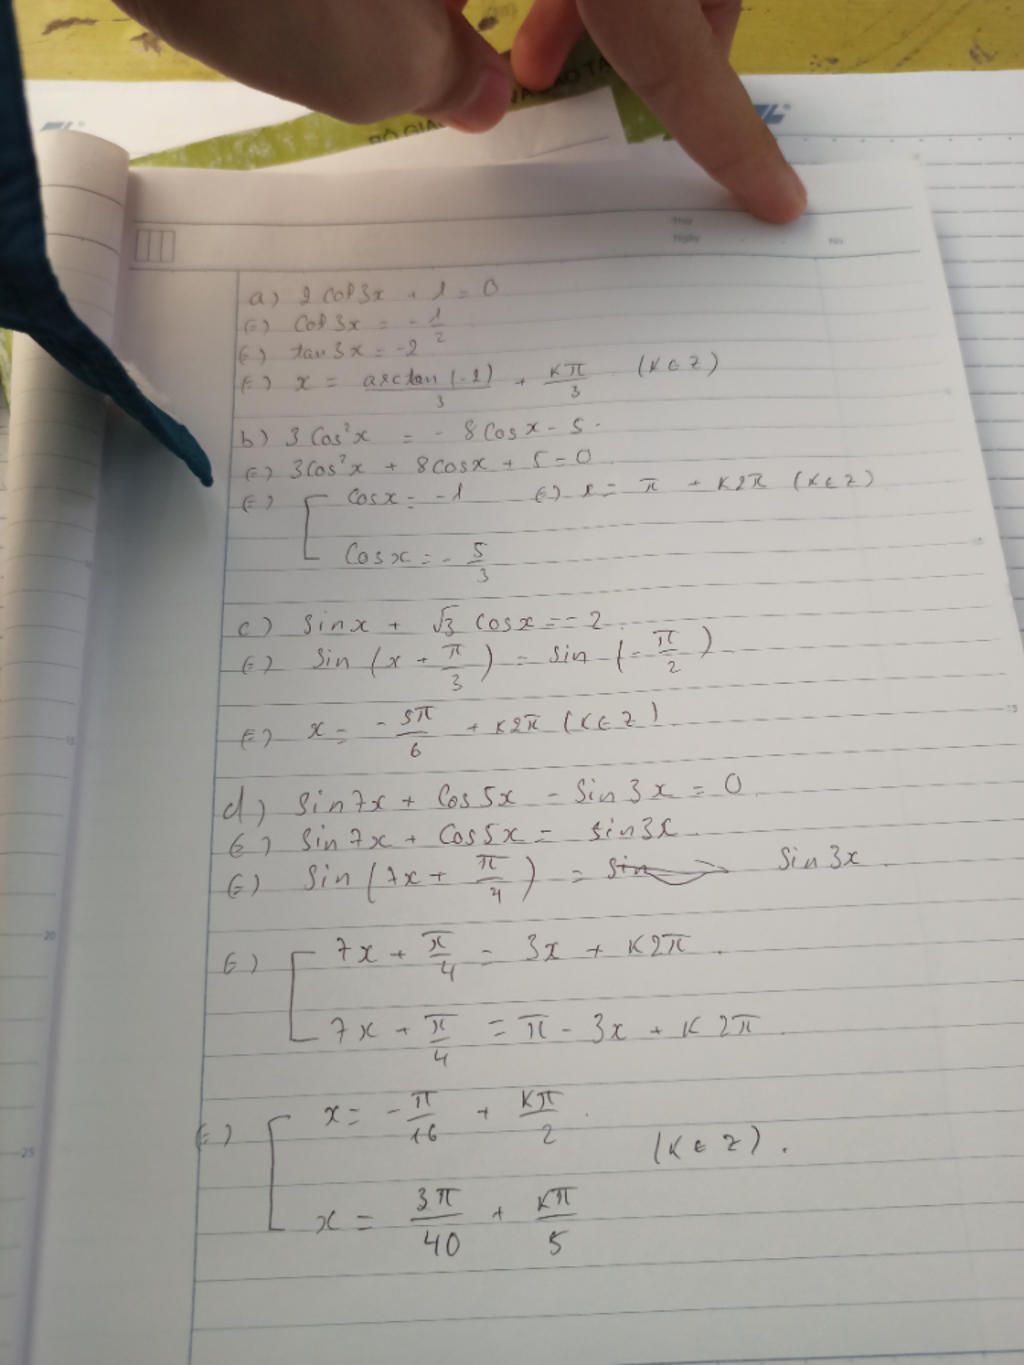 BỘ GIÁO VÀ ĐÀO TẠ
Thứ
Ngày No
a) 2 cot 3x + 1 = 0
(=) cot 3x = -1/2
(=) tan 3x = -2
(=) x = arctan(-2)/3 + kπ/3 (k ∈ Z)
b) 3 cos²x = - 8 cos x - 5.
(=) 3cos²x + 8cosx + 5 = 0
(=) [ cosx = -1 (=) x = π + k2π (k ∈ Z)
cosx = - 5/3
c) sinx + √3 cosx = -2.
(=) sin (x + π/3) = sin (-π/2)
(=) x = - 5π/6 + k2π (k ∈ Z).
d) sin7x + cos5x - sin3x = 0.
(=) sin7x + cos5x = sin3x.
(=) sin (7x + π/4) = sin 3x.
(=) [ 7x + π/4 = 3x + k2π.
7x + π/4 = π - 3x + k2π.
(=) [ x = - π/16 + kπ/2.
(k ∈ Z).
x = 3π/40 + kπ/5
15
15
20
25